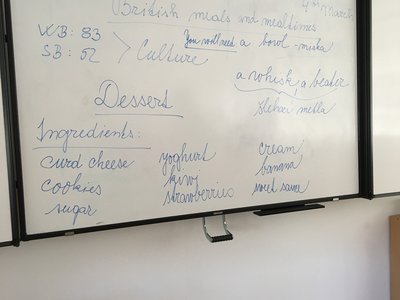 4th March
British meals and mealtimes
WB: 83
SB: 52
Culture
You will need a bowl - miska
a whisk, a beater
šlehač metla
Dessert
Ingredients:
curd cheese yoghurt cream
cookies kiwi banana
sugar strawberries sweet sauce